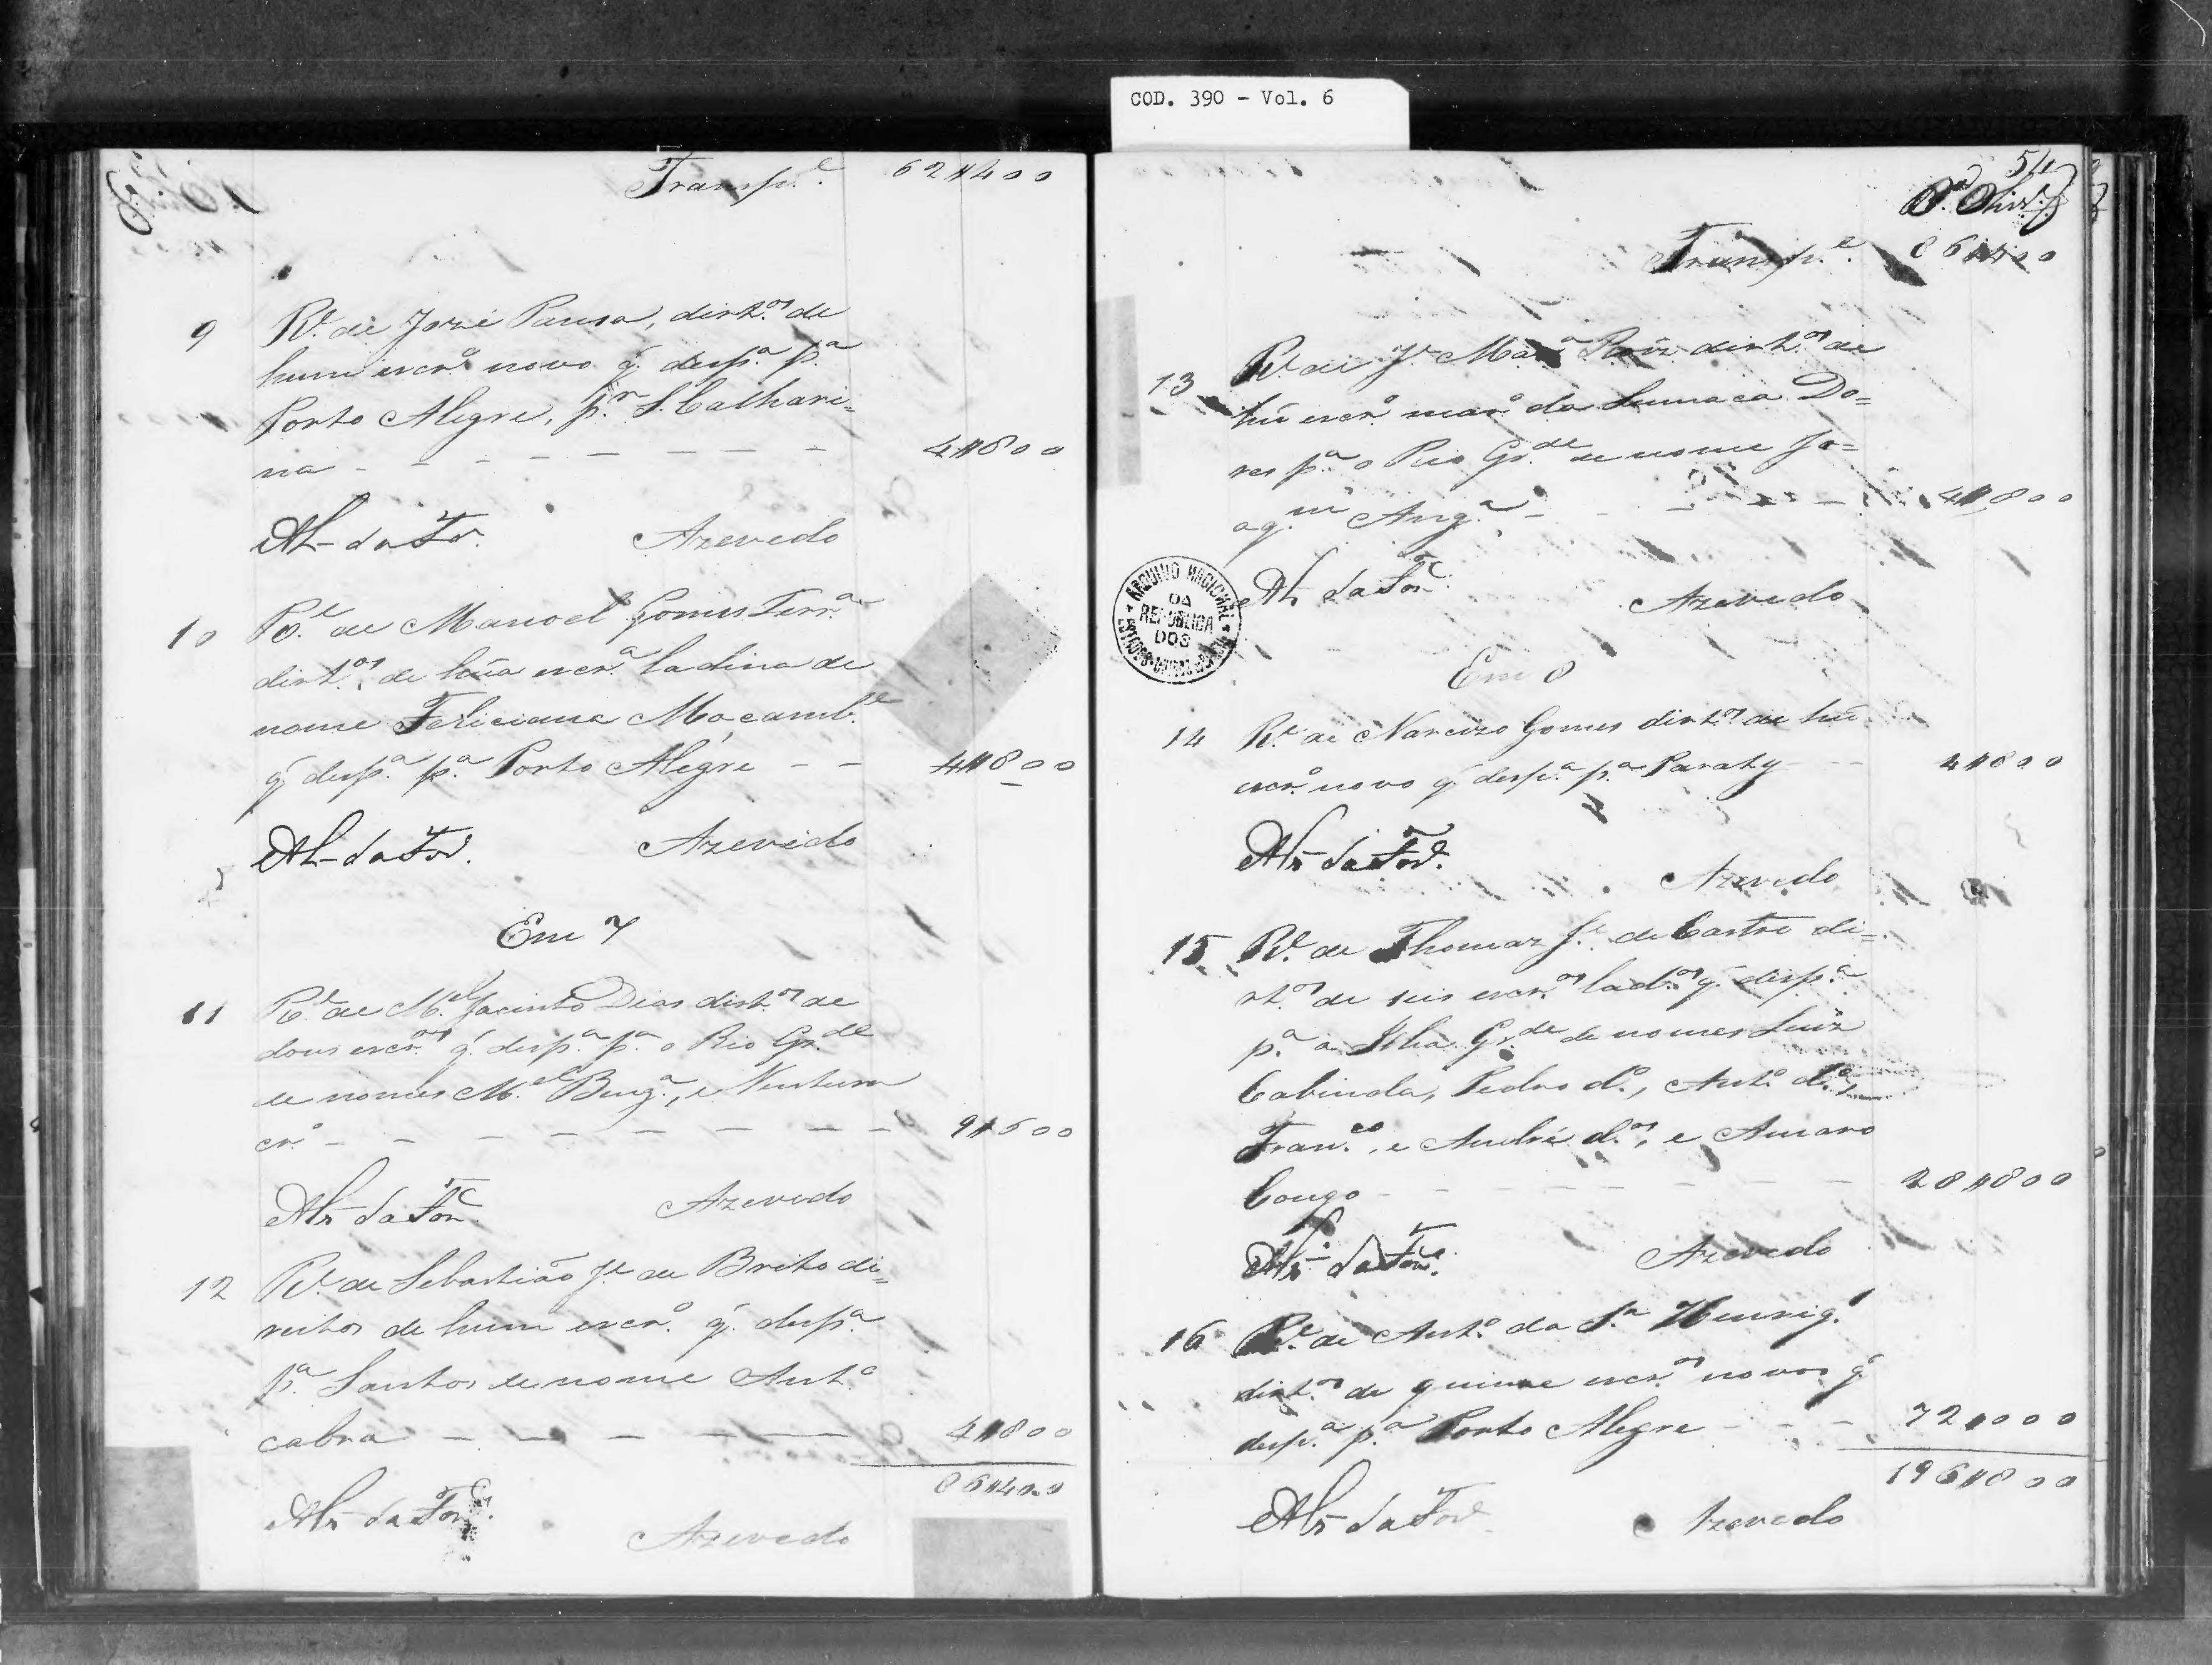 COD. 390 - Vol. 6
Transp.e 62$400
9 R.e de José Pausa, dirt.os de
hum escr.o novo q̃ desp.a p.a
Porto Alegre, p.r S. Cathari=
na - - - - - - - - 4$800
Azevedo
10 R.e de Manoel Gomes Ferr.a
dirt.os de hũa escr.a ladina de
nome Feliciana Moçamb.e
q̃ desp.a p.a Porto Alegre - - 4$800
Azevedo
Em 7
11 R.e de M.el Jacinto Dias dirt.os de
dous escr.os q̃ desp.a p.a o Rio Gr.de
de nomes M.el Beng.a, e Ventura
cr.o - - - - - - - - 9$600
Azevedo
12 R.e de Sebastião J.e de Brito di=
reitos de hum escr.o q̃ desp.a
p.a Santos de nome Ant.o
cabra - - - - - - 4$800
86$400
Azevedo
54
Transp.e 86$400
13 R.e de J.e M.a Roiz dirt.os de
hũ escr.o mar.o da Sumaca Do=
res p.a o Rio Gr.de de nome Jo=
aq.m Ang.a - - - - 4$800
Azevedo
ARQUIVO NACIONAL
DA
REPUBLICA
DOS
ESTADOS UNIDOS DO BRASIL
Em 8
14 R.e de Narcizo Gomes dirt.os de hũ
escr.o novo q̃ desp.a p.a Paraty - - 4$800
Azevedo
15 R.e de Thomaz J.e de Castro di=
rt.os de seis escr.os lad.os q̃ desp.a
p.a a Ilha Gr.de de nomes Luiz
Cabinda, Pedro d.o, Ant.o d.o,
Fran.co, e André d.os, e Amaro
Congo - - - - - - - 28$800
Azevedo
16 R.e de Ant.o da S.a Henriq.
dirt.os de quinze escr.os novos q̃
desp.a p.a Porto Alegre - - - 72$000
196$800
Azevedo